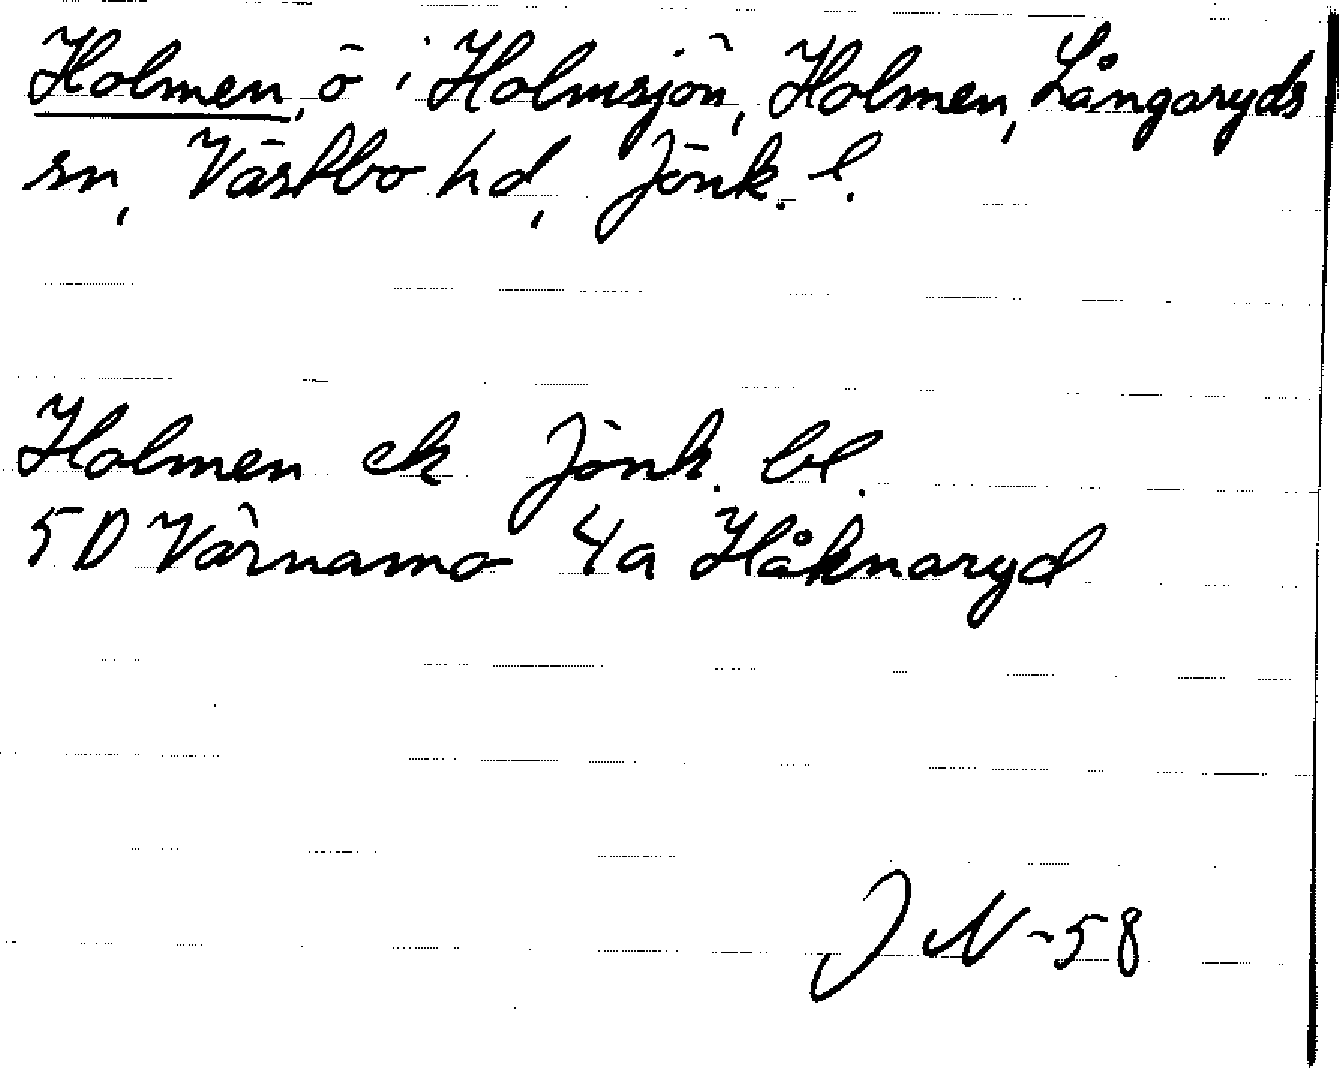 Holmen, ö i Holmsjön, Holmen, Långaryds
sn, Västbo hd, Jönk. l.
Holmen ek Jönk. bl.
5D Värnamo 4a Håknaryd
J N -58